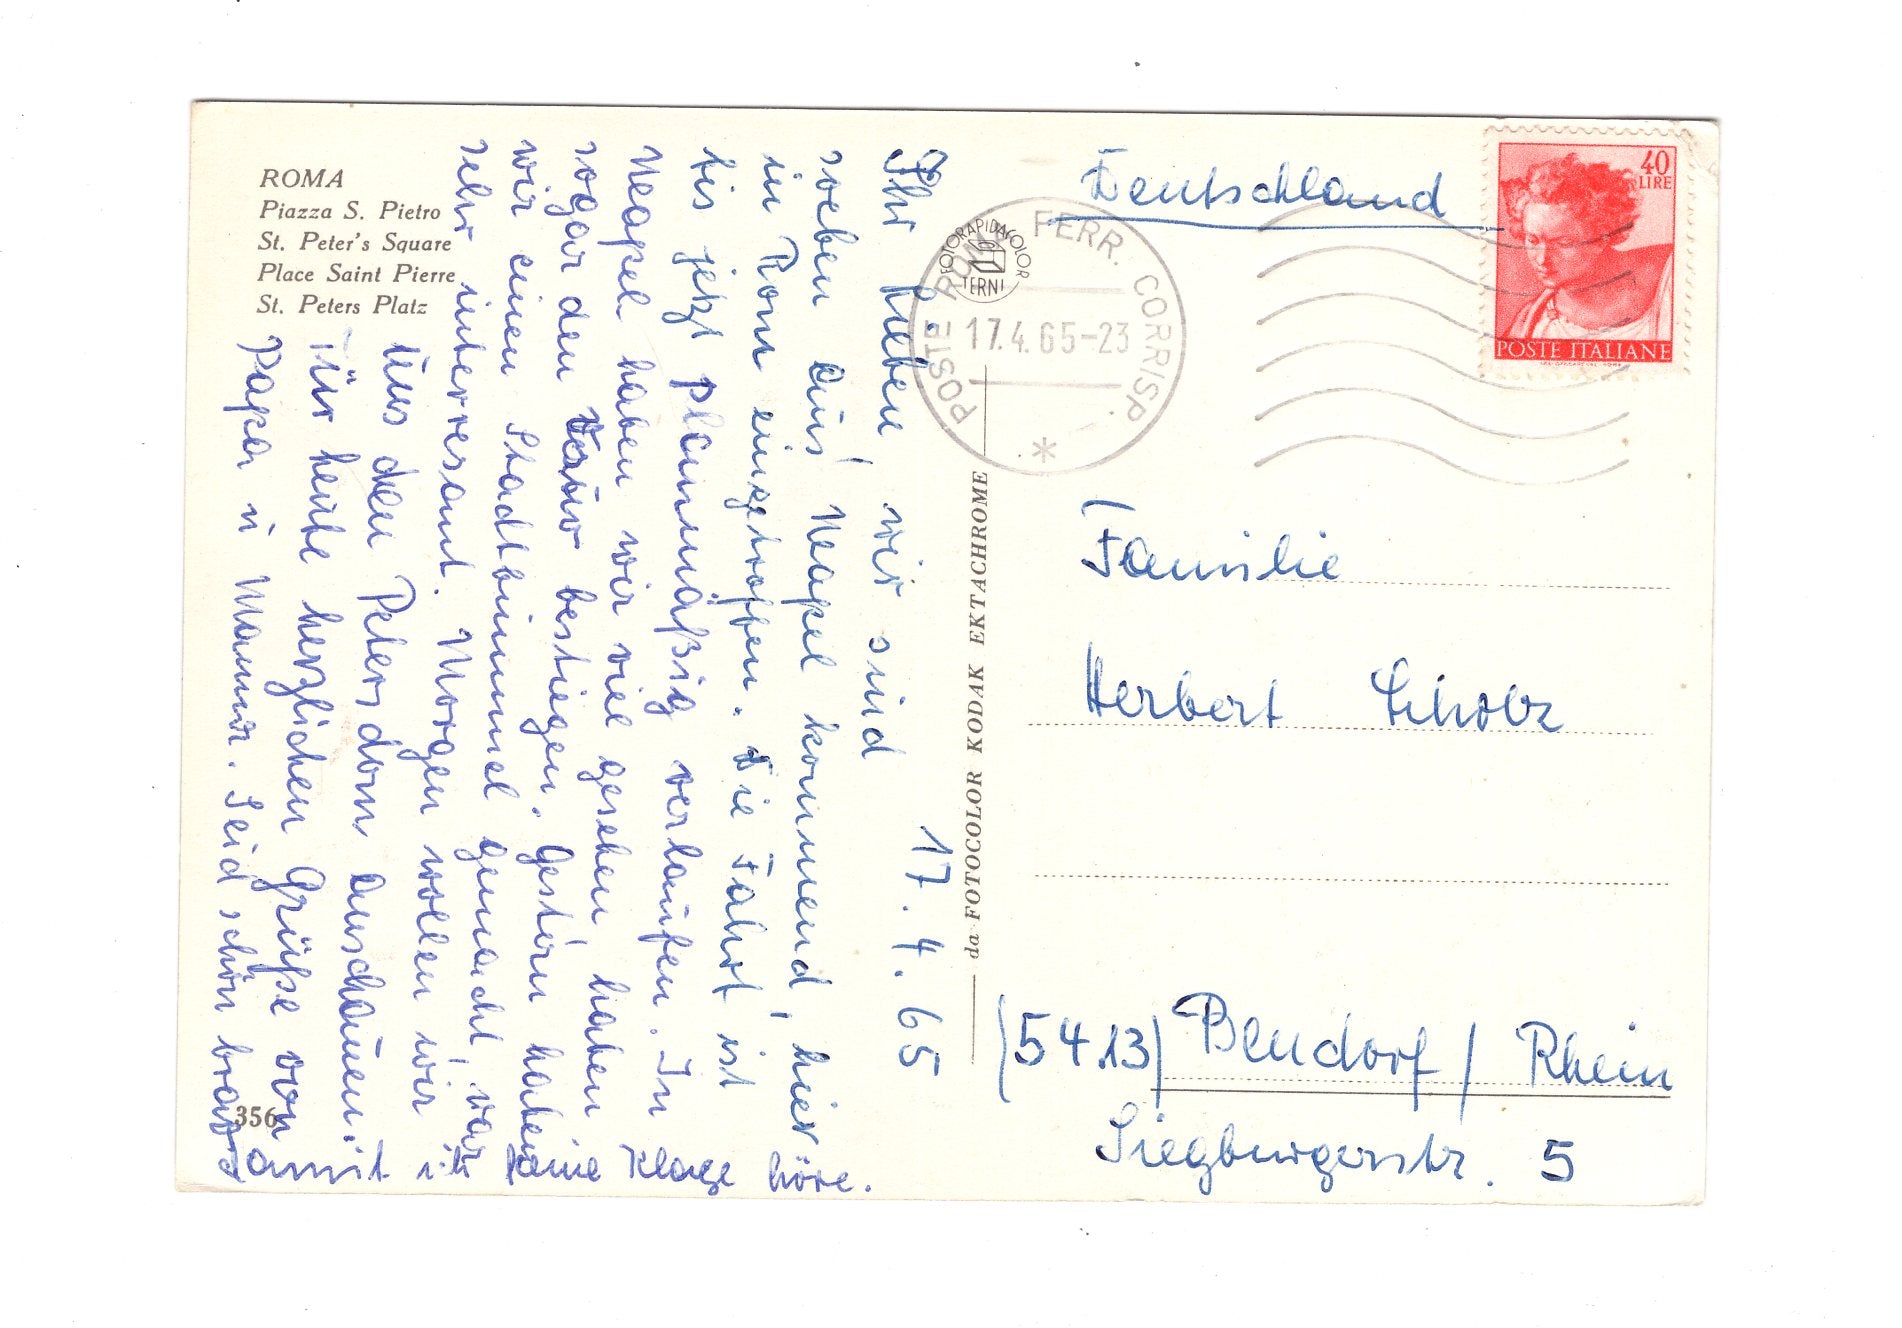 ROMA
Piazza S. Pietro
St. Peter's Square
Place Saint Pierre
St. Peters Platz
17.4.65
Ihr lieben wir sind
soeben aus Neapel kommend, hier
in Rom eingetroffen. Die Fahrt ist
bis jetzt planmäßig verlaufen. In
Neapel haben wir viel gesehen, haben
sogar den bestiegen. gestern haben
wir einen Stadtbummel gemacht, war
sehr interresant. Morgen wollen wir
uns den Petersdom anschauen.
Für heute herzlichen Grüße von
Papa u Mama. Seid schön brav
damit ich keine Klage höre.
356
da FOTOCOLOR KODAK EKTACHROME
FOTORAPIDACOLOR
TERNI
POSTE ROMA FERR. CORRISP.
17.4.65-23
Deutschland
40
LIRE
POSTE ITALIANE
Familie
Herbert Scholz
(5413) Bendorf / Rhein
Siegburgerstr. 5